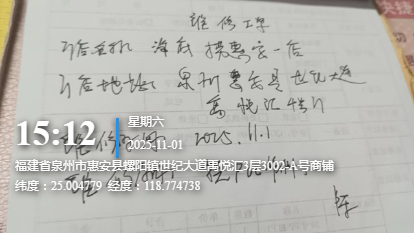 维修工单
门店名称 海底捞惠安一店
门店地址 泉州惠安县世纪大道
禹悦汇
2025.11.1
15:12
星期六
2025-11-01
福建省泉州市惠安县螺阳镇世纪大道禹悦汇3层3002-A号商铺
纬度：25.004779 经度：118.774738